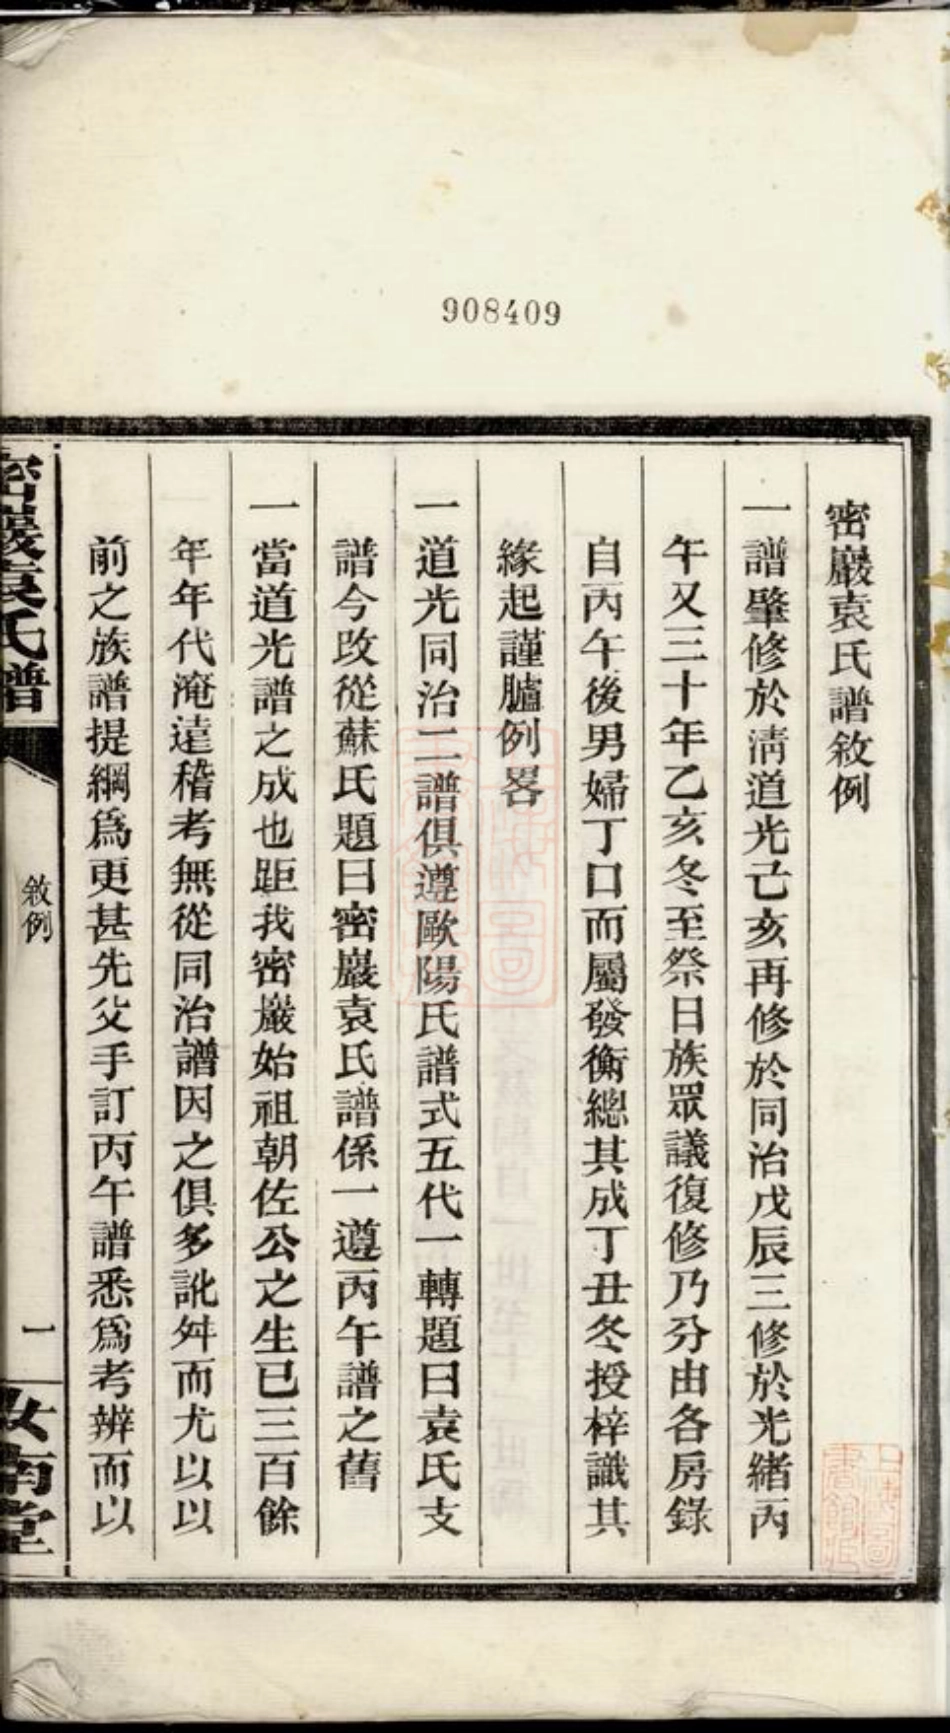 908409
密巖袁氏譜敘例
一譜肇修於淸道光己亥再修於同治戊辰三修於光緖丙
午又三十年乙亥冬至祭日族眾議復修乃分由各房錄
自丙午後男婦丁口而屬發衡總其成丁丑冬授梓識其
緣起謹臚例畧
一道光同治二譜俱遵歐陽氏譜式五代一轉題曰袁氏支
譜今改從蘇氏題曰密巖袁氏譜係一遵丙午譜之舊
一當道光譜之成也距我密巖始祖朝佐公之生已三百餘
年年代淹遠稽考無從同治譜因之俱多訛舛而尤以以
前之族譜提綱爲更甚先父手訂丙午譜悉爲考辨而以
密巖袁氏譜
敘例
一
汝南堂